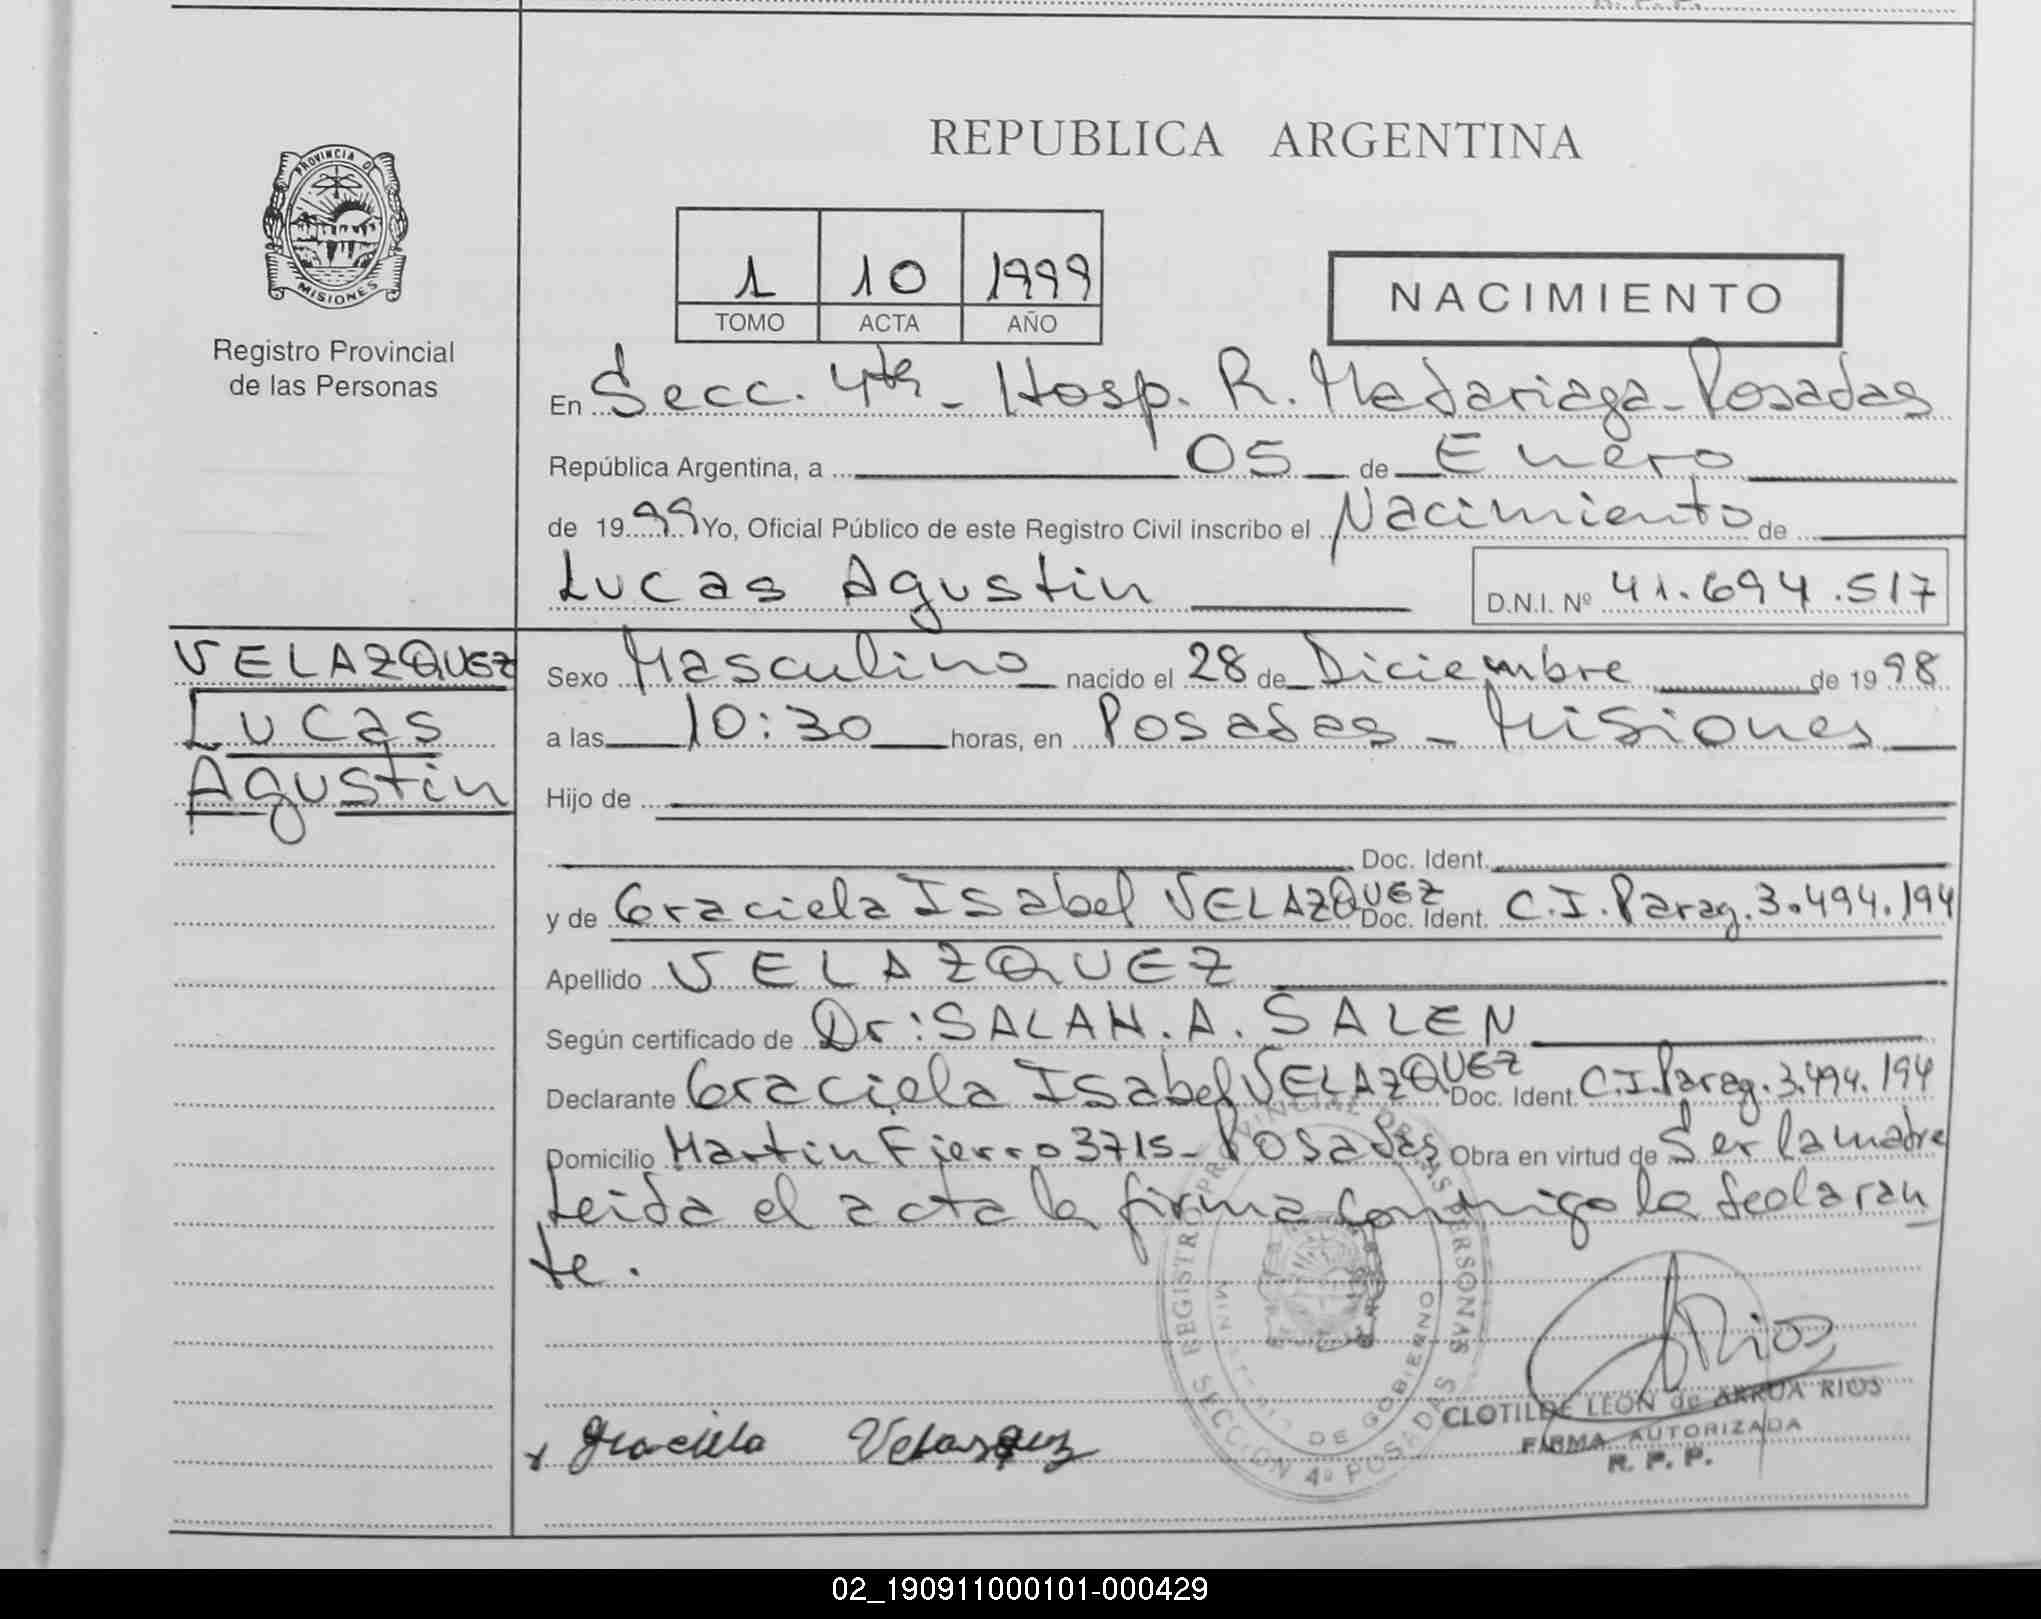 REPUBLICA ARGENTINA
PROVINCIA DE
MISIONES
Registro Provincial
de las Personas
1 10 1999
TOMO ACTA AÑO
NACIMIENTO
En Secc. 4ta - Hosp. R. Madariaga - Posadas
República Argentina, a 05 de Enero
de 1999 Yo, Oficial Público de este Registro Civil inscribo el Nacimiento de
Lucas Agustin D.N.I. Nº 41.694.517
VELAZQUEZ
Lucas
Agustin
Sexo Masculino nacido el 28 de Diciembre de 1998
a las 10:30 horas, en Posadas - Misiones
Hijo de
Doc. Ident.
y de Graciela Isabel VELAZQUEZ Doc. Ident. C.I. Parag. 3.494.194
Apellido VELAZQUEZ
Según certificado de Dr: SALAH. A. SALEN
Declarante Graciela Isabel VELAZQUEZ Doc. Ident. C.I. Parag. 3.494.194
Domicilio Martin Fierro 3715 - Posadas Obra en virtud de Ser la madre
Leida el acta la firma conmigo la declaran
te.
REGISTRO PROVINCIAL DE LAS PERSONAS
MINISTERIO DE GOBIERNO
SECCION 4º POSADAS
Rios
CLOTILDE LEON de ARRUA RIOS
FIRMA AUTORIZADA
R. P. P.
x Graciela Velasquez
02_190911000101-000429